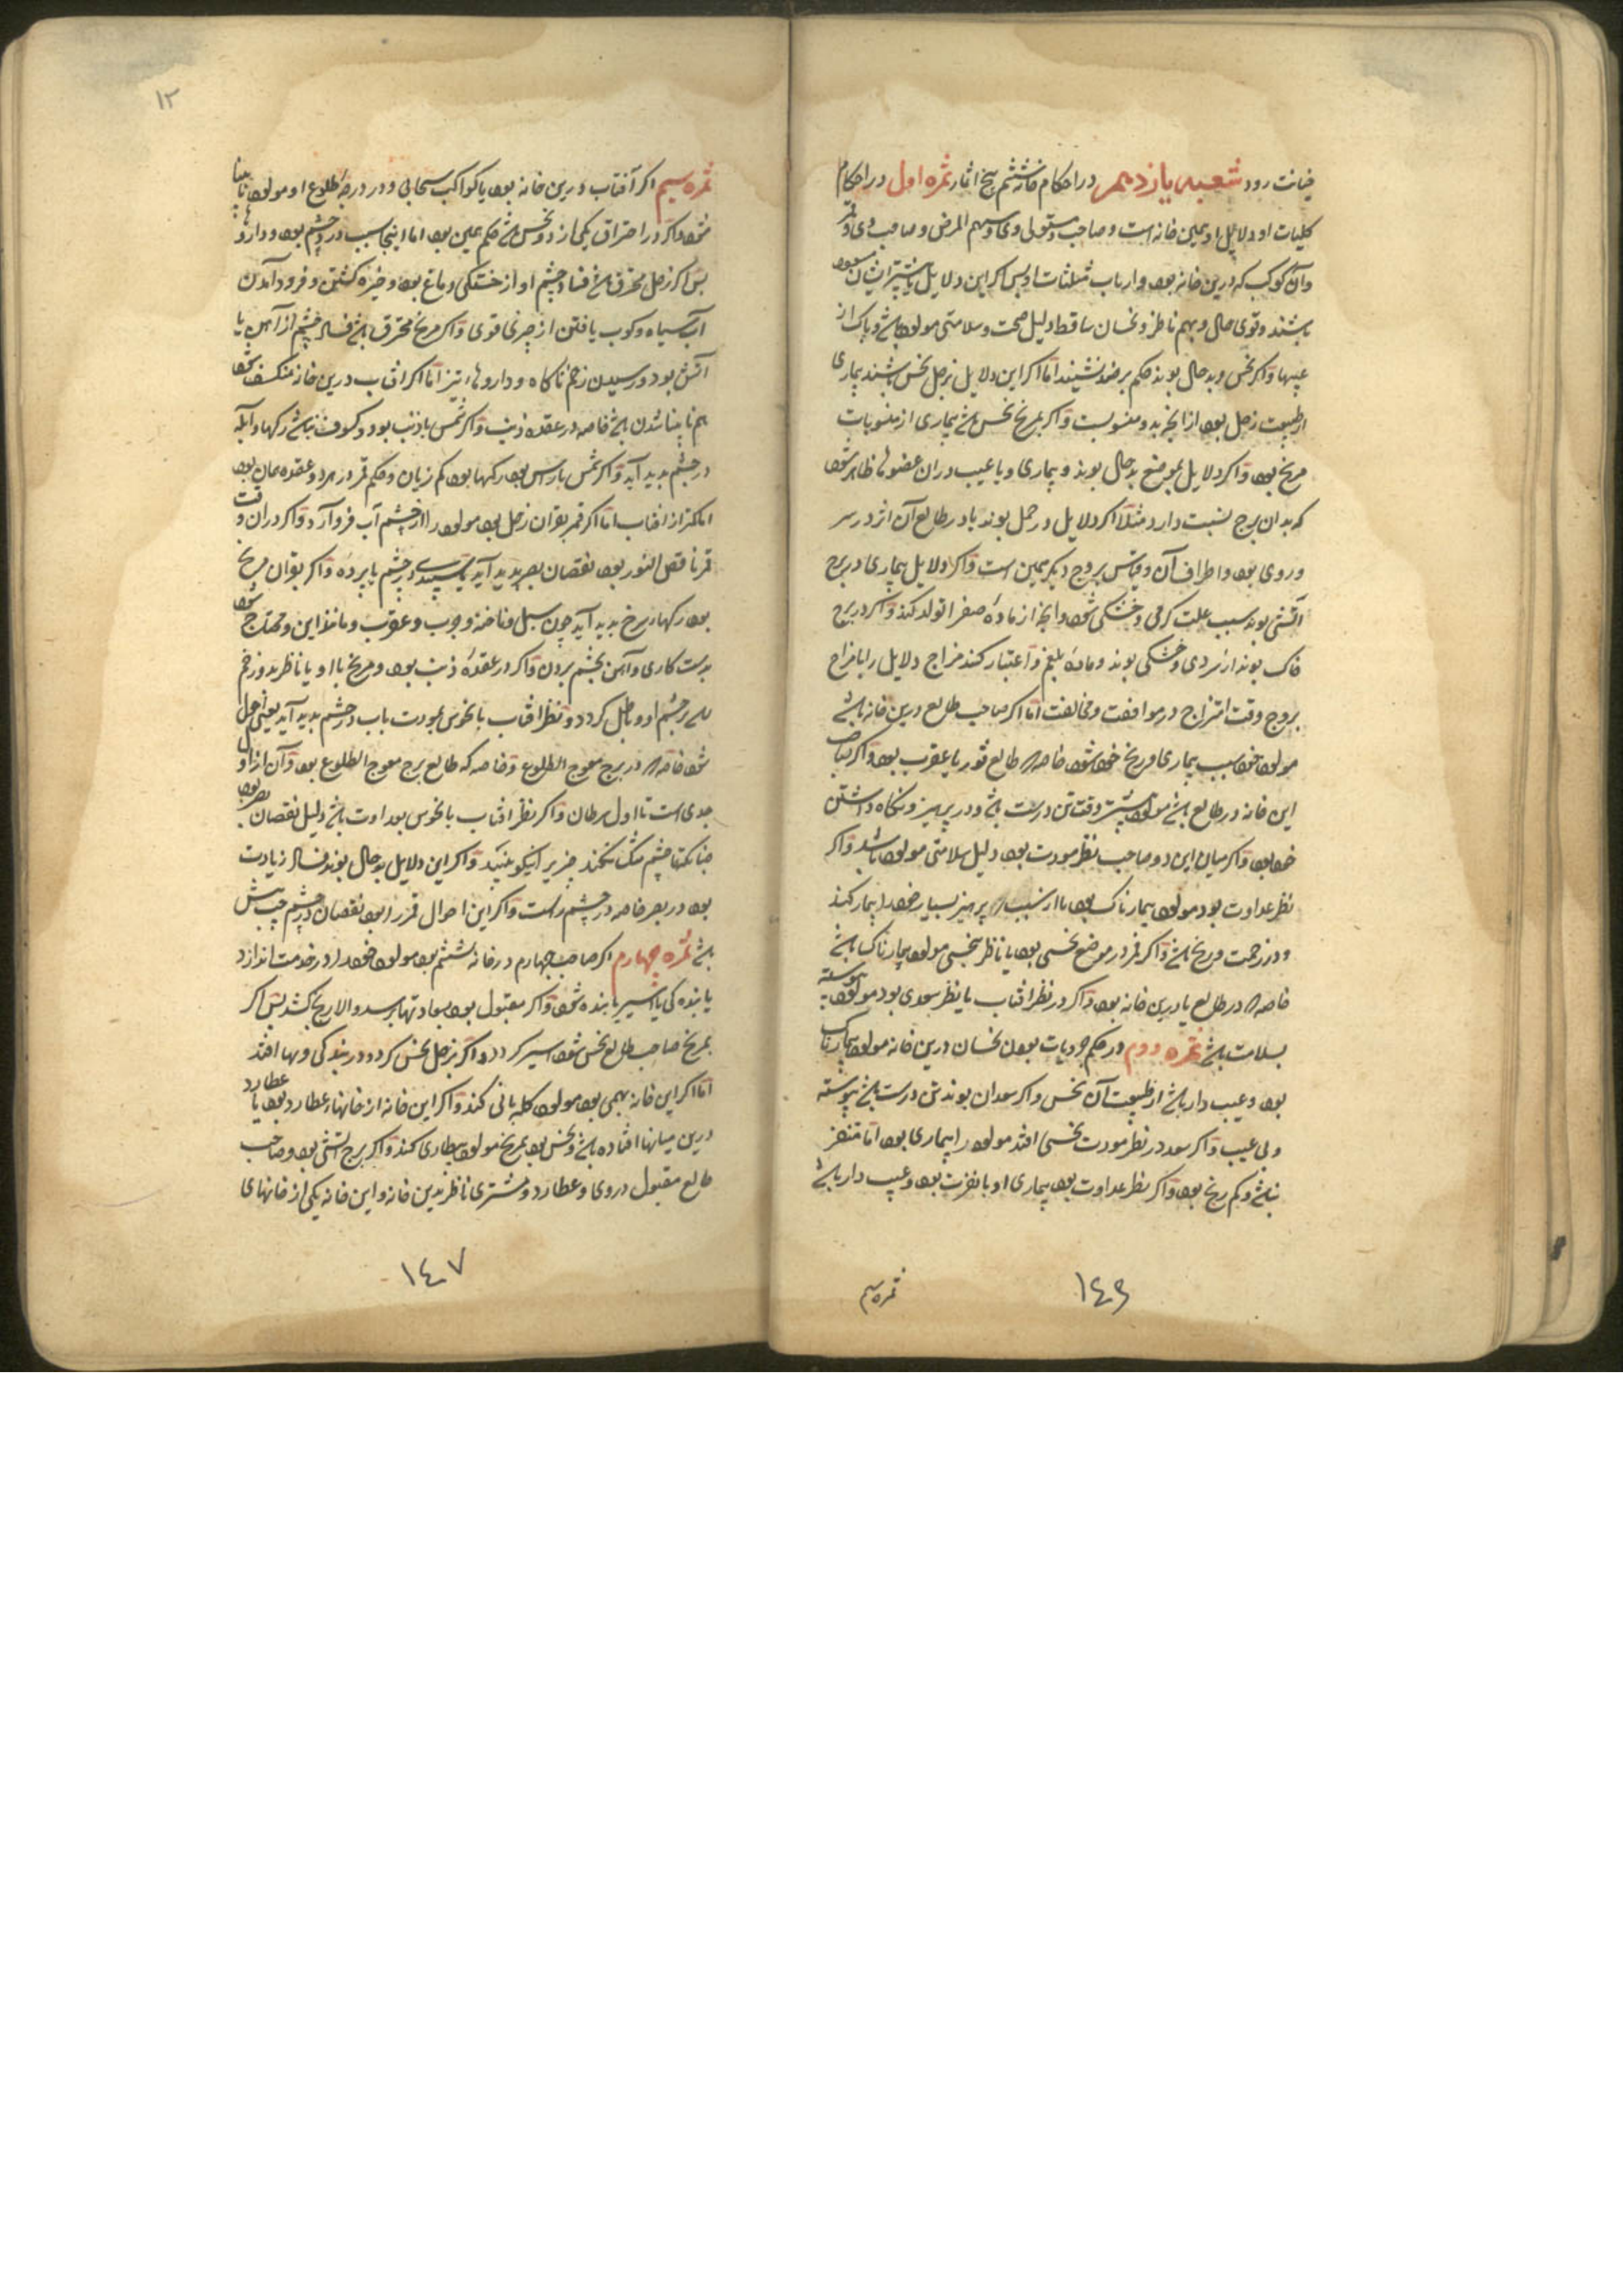 خیانت رود شعبه یازدهم در احکام خانه ششم پنج اثمار ثمره اول در احکام
کلیات او و دلایل او همین خانه است و صاحب و مستولی وی و سهم المرض و صاحب وی و قمر
و آن کوکب که درین خانه بود و ارباب مثلثات او پس اگر این دلایل یا بیشتر ایشان مسعود
باشند و قوی حال و بهم ناظر و نحسان ساقط دلیل صحت و سلامتی مولود باشد و پاک از
عیبها و اگر نحس و بد حال بوند حکم بر ضد نشیند اما اگر این دلایل بزحل نحس باشند بیماری
از طبیعت زحل بود از انچه بدو منسوبست و اگر بمریخ نحس باشد بیماری از منسوبات
مریخ بود و اگر دلایل بموضع بد حال بوند و بیماری و یا عیب دران عضوها ظاهر شود
که بدان برج نسبت دارد مثلا اگر دلایل در حمل بوند یا در طالع آن اثر در سر
و روی بود و اطراف آن و قیاس بروج دیگر همین است و اگر دلایل بیماری در برج
آتشی بوند بسبب علت گرمی و خشکی شود و انچه از ماده صفرا تولد کند و اگر در برج
خاک بوند از سردی و خشکی بوند و ماده بلغم و اعتبار کند مزاج دلایل را با مزاج
بروج وقت امتزاج در موافقت و مخالفت اما اگر صاحب طالع درین خانه باشد
مولود خود سبب بیماری و رنج خود شود خاصه که طالع ثور یا عقرب بود و اگر صاحب
این خانه در طالع باشد مولود بیشتر وقت تن درست باشد و در پرهیز و نگاه داشتن
خود بود و اگر میان این دو صاحب نظر مودت بود دلیل سلامتی مولود باشد و اگر
نظر عداوت بود مولود بیمارناک بود یا از سبب پرهیز بسیار خود را بیمار کند
و در زحمت و رنج باشد و اگر قمر در موضع نحسی بود یا ناظر نحسی مولود بیمارناک باشد
خاصه که در طالع یا درین خانه بود و اگر در نظر افتاب یا بنظر سعدی بود مولود پیوسته
بسلامت باشد ثمره دوم در حکم جزویات بودن نحسان درین خانه مولود بیمارناک
بود و عیب دار باشد از طبیعت آن نحس و اگر سعدان بوند تن درست باشد پیوسته
و بی عیب و اگر سعد در نظر مودت نحسی افتد مولود را بیماری بود اما متنفر
نباشد و کم رنج بود و اگر نظر عداوت بود بیماری او با نفرت بود و عیب دار باشد
ثمره سیم
١٤٦
١٢
ثمره سیم اگر آفتاب درین خانه بود یا کواکب سحابی و در درجه طلوع او مولود نابینا
شود و اگر در احتراق یکی از دو نحس باشد حکم همین بود اما اینجا سبب درد چشم بود و داروها
پس اگر زحل محترق باشد فساد چشم او از خشکی دماغ بود و خیره گشتن و فرود آمدن
آب سیاه و کوب یافتن از چیزی قوی و اگر مریخ محترق باشد فساد چشم از آهن یا
آتش بود و رسیدن زخم ناگاه و داروهاء تیز اما اگر افتاب درین خانه منکسف شود
هم نابینا شدن باشد خاصه در عقده ذنب و اگر شمس با ذنب بود و کسوف نباشد رگها و آبله
در چشم پدید آید و اگر شمس با راس بود رگها بود کم زیان و حکم قمر در هر دو عقده همان بود
اما کمتر از افتاب اما اگر قمر بقران زحل بود مولود را از چشم آب فرو آرد و اگر دران وقت
قمر ناقص النور بود نقصان بصر پدید آید یا سپیدی در چشم یا پرده و اگر بقران مریخ
بود رگهاء سرخ پدید آید چون سبل و ناخنه و جرب و عقرب و مانند این و محتاج شود
بدست کاری و آهن بچشم بردن و اگر در عقده ذنب بود و مریخ با او یا ناظر بدو زخم
بر چشم او و باطل گردد و نظر افتاب با نحوس بمودت باب در چشم پدید آید یعنی احول
شود خاصه که در برج معوج الطلوع و خاصه که طالع برج معوج الطلوع بود و آن از اول
جدی است تا اول سرطان و اگر نظر افتاب با نحوس بعداوت باشد دلیل نقصان بصر بود
چنانکه تا چشم تنگ نکند چیز را نیکو نبیند و اگر این دلایل بد حال بوند فساد زیادت
بود در بصر خاصه در چشم راست و اگر این احوال قمر را بود نقصان در چشم چپ بیش
باشد ثمره چهارم اگر صاحب چهارم در خانه ششم بود مولود خود را در خدمت اندازد
یا بندگی یا اسیر یا بنده شود و اگر مقبول بود بسعادتها برسد و الا رنج کشد پس اگر
بمریخ صاحب طالع نحس شود اسیر گردد و اگر بزحل نحس گردد در بندگی و بها افتد
اما اگر این خانه بهیمی بود مولود گله بانی کند و اگر این خانه از خانهاء عطارد بود یا عطارد
درین میانها افتاده باشد و نحس بود بمریخ مولود بیطاری کند و اگر برج آتشی بود و صاحب
طالع مقبول در وی و عطارد و مشتری ناظر بدین خانه و این خانه یکی از خانهای
١٤٧